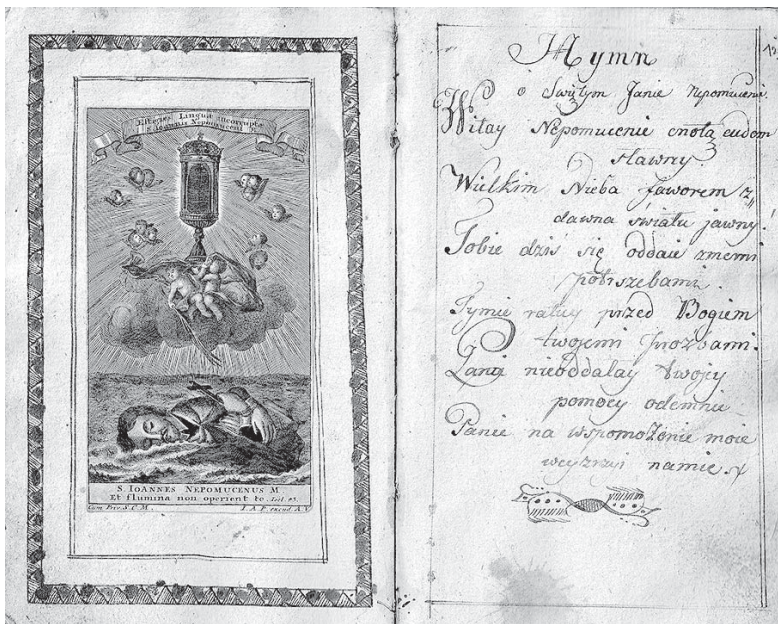 Effigies Linguae incorruptae
S. Ioannis Nepomuceni
S. IOANNES NEPOMUCENUS M.
Et flumina non operient te. Isai. 43.
Cum Priv. S. C. M. I. A. P. excud. A. V.
Hymn
o Swiętym Janie Nepomuceni.
Witay Nepomucenie cnotą cudom
sławny
Wielkim Nieba faworem z
dawna światu jawny!
Tobie dziś się oddaie zmemi
potrszebami.
Tymie ratuy przed Bogiem
twojemi proźbami.
nieoddalay twojy
pomocy odemnie
Panie na wspomożenie moie
weyzrzy namie.